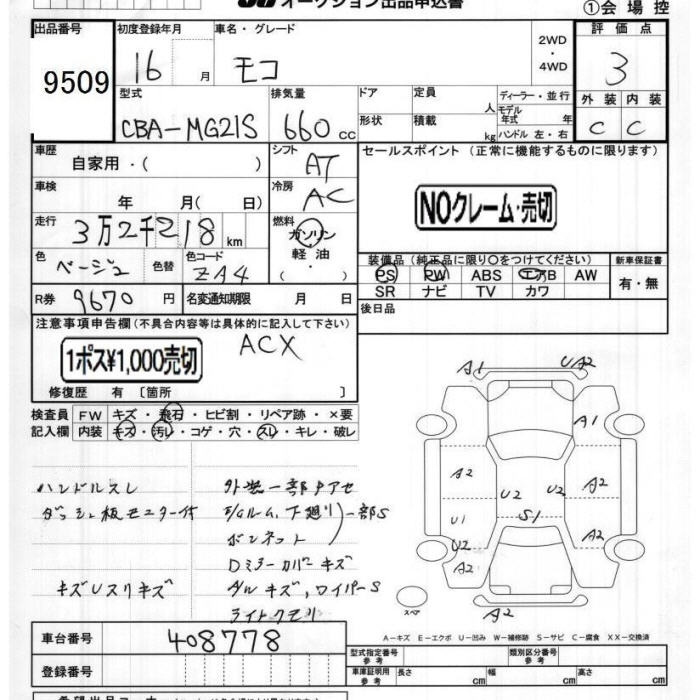 オークション出品申込書
①会場控
出品番号 初度登録年月 車名・グレード 2WD・4WD 評価点
9509 16 月 モコ 3
型式 排気量 ドア 定員 人 ディーラー・並行 外装 内装
CBA-MG21S 660 cc 形状 積載 kg モデル年式 年 ハンドル 左・右 C C
車歴 自家用・( ) シフト AT セールスポイント (正常に機能するものに限ります)
車検 年 月( 日) 冷房 AC
NOクレーム・売切
走行 3万2千218 km 燃料 ガソリン・軽油・( )
色 ベージュ 色替 色コード ZA4
装備品 (純正品に限り○をつけてください) 新車保証書
PS PW ABS エアB AW 有・無
SR ナビ TV カワ
R券 9670 円 名変通知期限 月 日
後日品
注意事項申告欄(不具合内容等は具体的に記入して下さい)
1ポス¥1,000売切 ACX
修復歴 有 〔箇所 〕
検査員記入欄 FW キズ・飛石・ヒビ割・リペア跡・×要
内装 キズ・汚レ・コゲ・穴・スレ・キレ・破レ
A1 UA2
A1
A2 A2
U2 U2
U1 S1 A2
U2
A2
スペア A2
ハンドルスレ 外装一部アセ
ダッシュ板モニター付 E/Gルム、下廻り 一部S
ボンネット
Dミラーカバーキズ
キズUスリキズ ダルキズ、ワイパーS
ライトクモリ
A-キズ E-エクボ U-凹み W-補修跡 S-サビ C-腐食 XX-交換済
車台番号 408778
登録番号
型式指定番号 参考 類別区分番号 参考
車庫証明用 参考 長さ cm 幅 cm 高さ cm